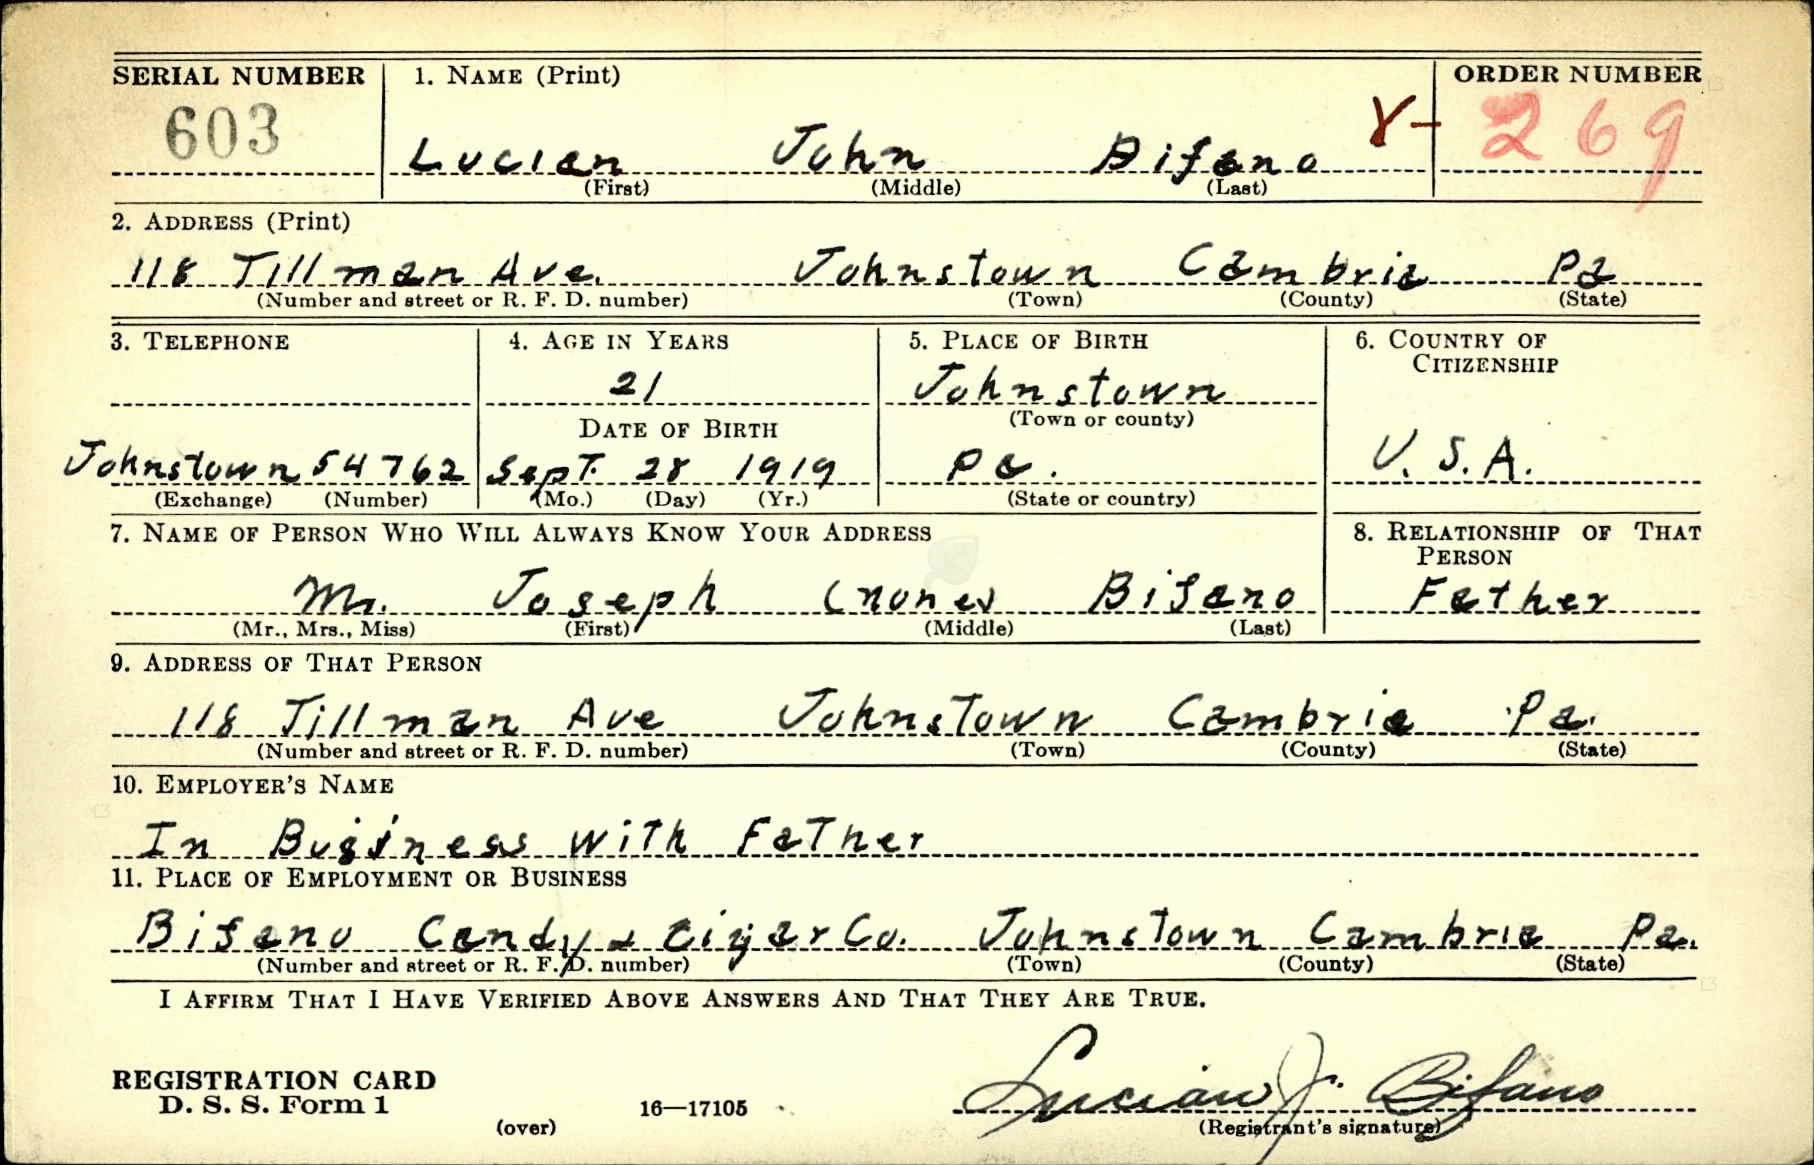 SERIAL NUMBER 1. NAME (Print) ORDER NUMBER
603 Lucian John Bifano Y- 269
(First) (Middle) (Last)
2. ADDRESS (Print)
118 Tillman Ave. Johnstown Cambria Pa
(Number and street or R. F. D. number) (Town) (County) (State)
3. TELEPHONE 4. AGE IN YEARS 5. PLACE OF BIRTH 6. COUNTRY OF CITIZENSHIP
21 Johnstown
DATE OF BIRTH (Town or county)
Johnstown 54762 Sept. 28 1919 Pa. U. S. A.
(Exchange) (Number) (Mo.) (Day) (Yr.) (State or country)
7. NAME OF PERSON WHO WILL ALWAYS KNOW YOUR ADDRESS 8. RELATIONSHIP OF THAT PERSON
Mr. Joseph (none) Bifano Father
(Mr., Mrs., Miss) (First) (Middle) (Last)
9. ADDRESS OF THAT PERSON
118 Tillman Ave Johnstown Cambria Pa.
(Number and street or R. F. D. number) (Town) (County) (State)
10. EMPLOYER'S NAME
In Business with Father
11. PLACE OF EMPLOYMENT OR BUSINESS
Bifano Candy & Cigar Co. Johnstown Cambria Pa.
(Number and street or R. F. D. number) (Town) (County) (State)
I AFFIRM THAT I HAVE VERIFIED ABOVE ANSWERS AND THAT THEY ARE TRUE.
REGISTRATION CARD
D. S. S. Form 1 16—17105 Lucian J. Bifano
(over) (Registrant's signature)